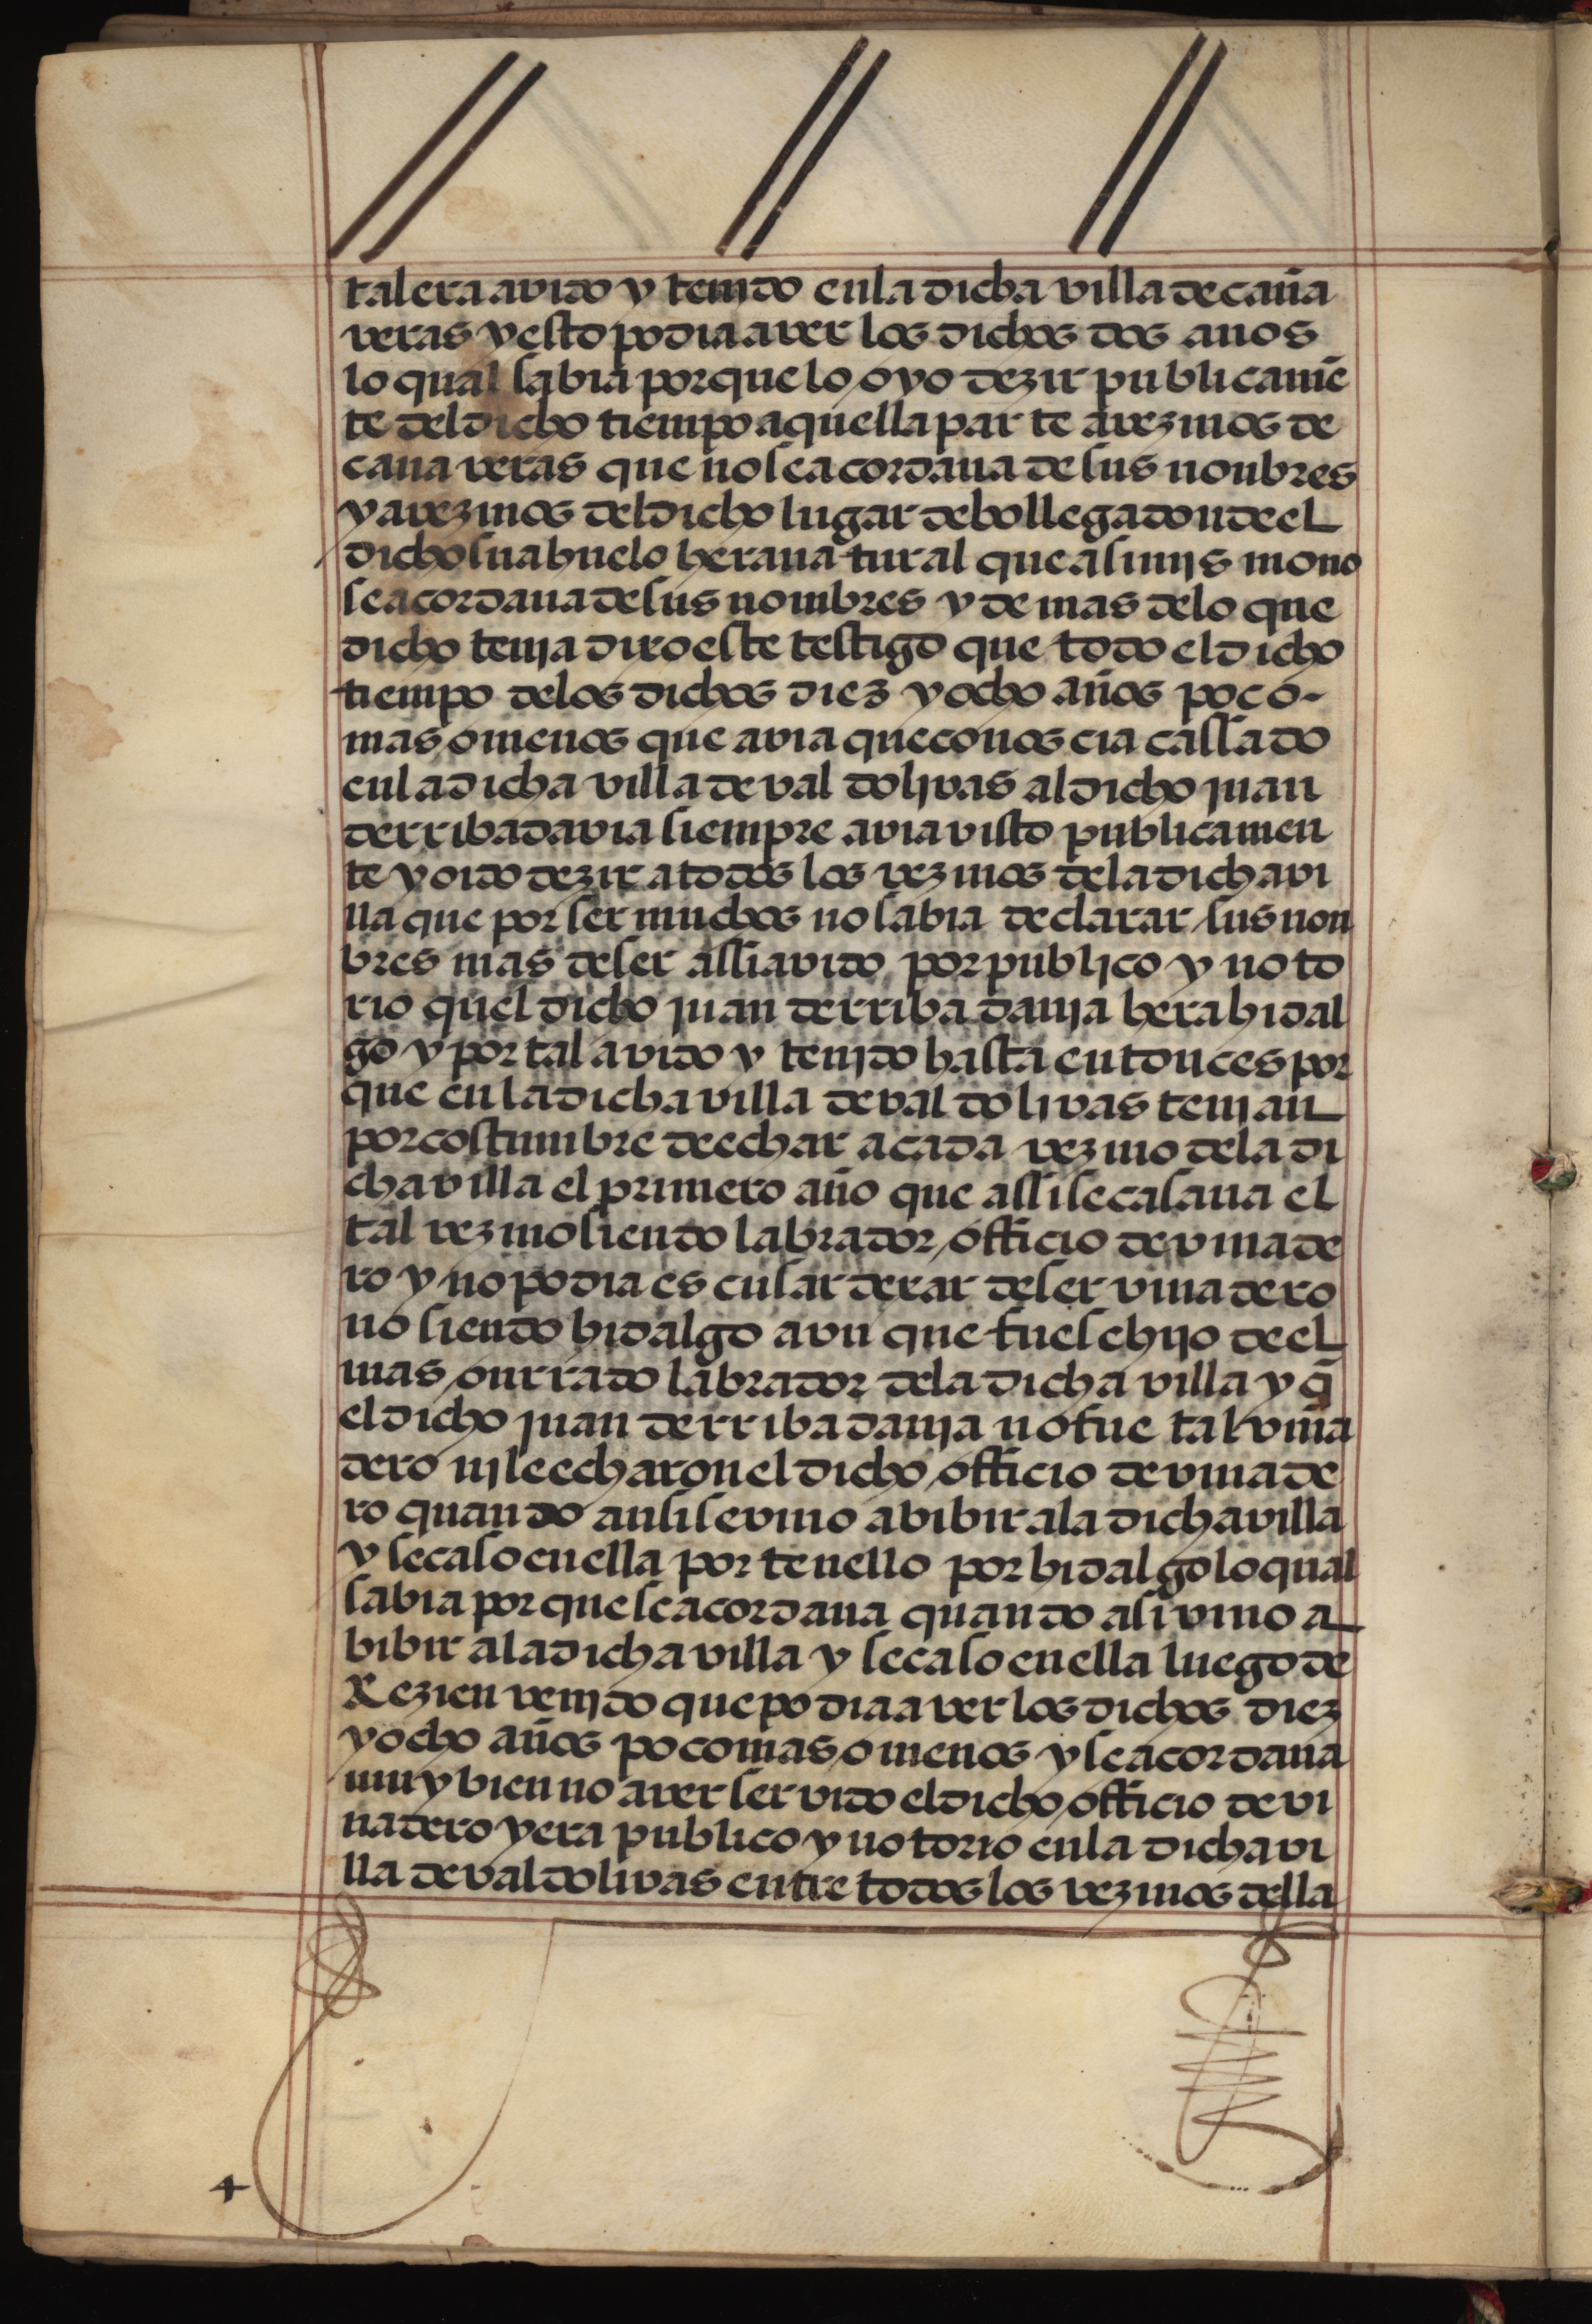 tal era avido y tenjdo en la dicha villa de caña
veras y esto podia aver los dichos dos anos
lo qual sabia porque lo oyo dezir publicamẽ
te del dicho tiempo aquella parte a vezinos de
cana veras que no se acordaua de sus nonbres
y a vezinos del dicho lugar de bollega donde el
dicho su abuelo hera natural que asimjs mo no
se acordaua de sus nombres y de mas de lo que
dicho tenja dixo este testigo que todo el dicho
tiempo de los dichos diez y ocho años poco
mas o menos que avia que conoscia cassado
en la dicha villa de val doljvas al dicho juan
de rribadavia siempre avia visto publicamen
te y oido dezir a todos los vezinos de la dicha vi
lla que por ser muchos no sabia declarar sus non
bres mas de ser assi avido por publico y noto
rio quel dicho juan de rriba davja hera hidal
go y por tal avido y tenjdo hasta entonces por
que en la dicha villa de val dolivas tenian
por costumbre de echar a cada vezino de la di
cha villa el primero año que assi se casaua el
tal vezino siendo labrador officio de vinade
ro y no podia escusar dexar de ser vinadero
no siendo hidalgo avn que fuese hijo de el
mas onrrado labrador de la dicha villa y q̃
el dicho juan de rriba davja no fue tal viña
dero nj le echaron el dicho officio de vinade
ro quando ansi se vino a bibir a la dicha villa
y se caso en ella por tenello por hidalgo lo qual
sabia por que se acordaua quando asi vino a
bibir a la dicha villa y se caso en ella luego de
Rezien venjdo que podia aver los dichos diez
y ocho años poco mas o menos y se acordaua
muy bien no aver servido el dicho officio de vi
nadero y era publico y notorio en la dicha vi
lla de valdolivas entre todos los vezinos della